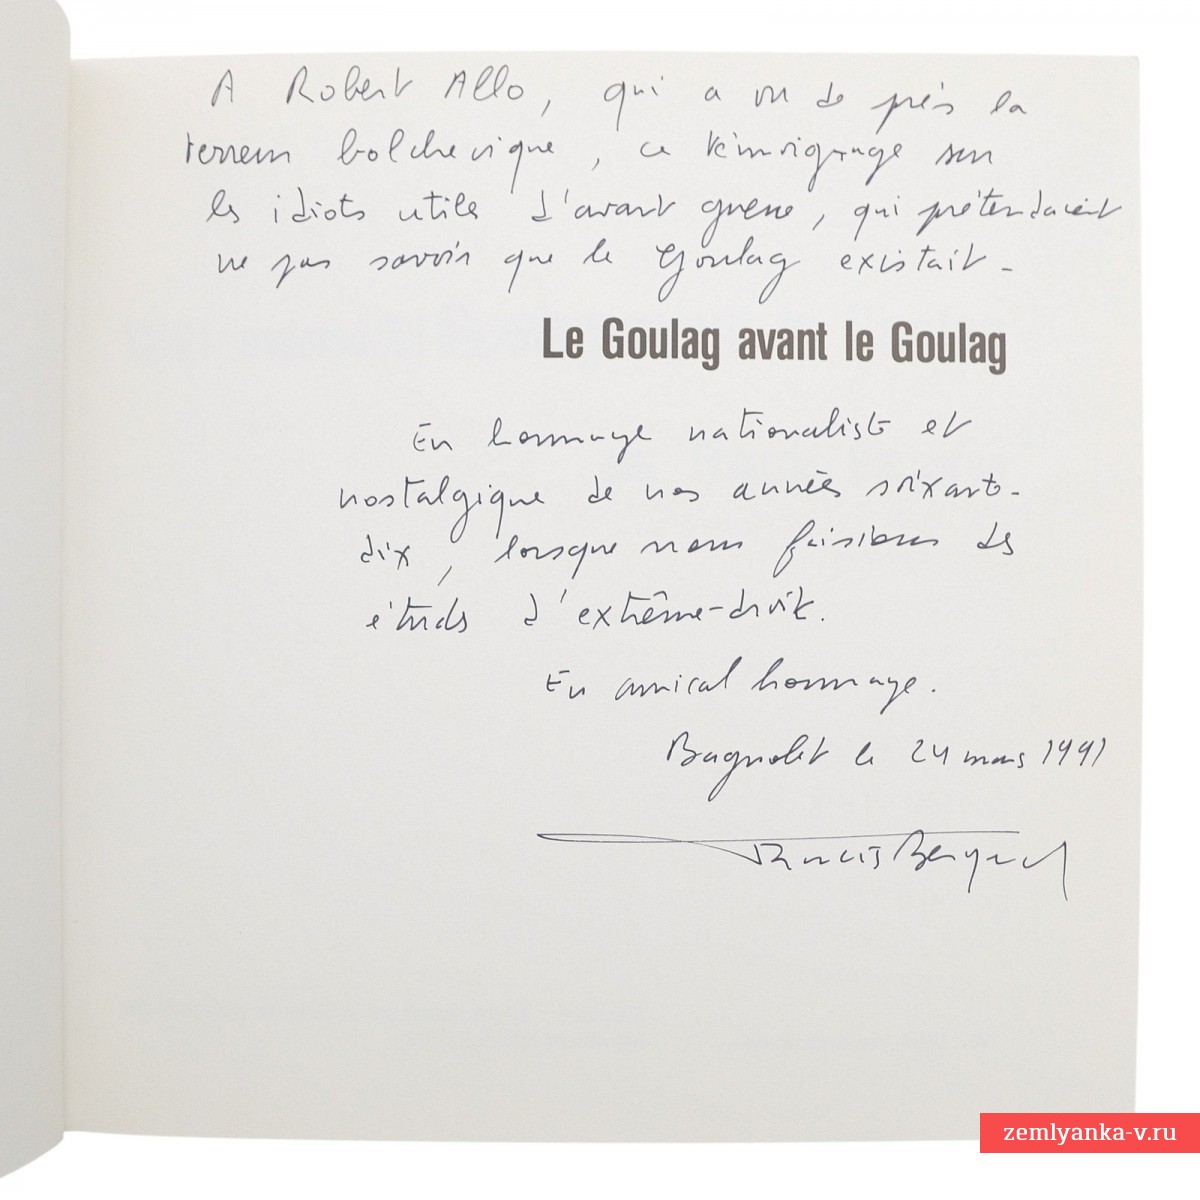 A Robert Allo, qui a vu de près la
terreur bolchevique, ce témoignage sur
les idiots utiles d'avant guerre, qui prétendaient
ne pas savoir que le Goulag existait -
Le Goulag avant le Goulag
En hommage nationaliste et
nostalgique de nos années soixante-
dix, lorsque nous faisions des
études d'extrême-droite.
En amical hommage.
Bagnolet le 24 mars 1991
Francis Bergeron
zemlyanka-v.ru